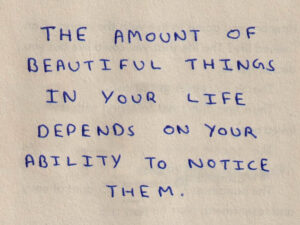 THE AMOUNT OF
BEAUTIFUL THINGS
IN YOUR LIFE
DEPENDS ON YOUR
ABILITY TO NOTICE
THEM.